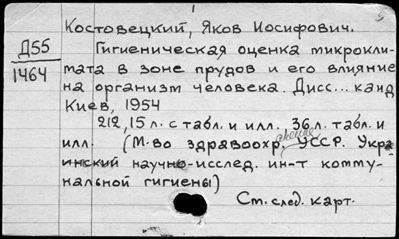 Костовецкий, Яков Иосифович.
Д55
1464
Гигиеническая оценка микрокли-
мата в зоне прудов и его влияние
на организм человека. Дисс... канд
Киев, 1954
212, 15 л. с табл. и илл. 36 л. табл. и
илл. (М-во здравоохр. УССР. Укра
инский научно-исслед. ин-т комму-
нальной гигиены)
См. след. карт.